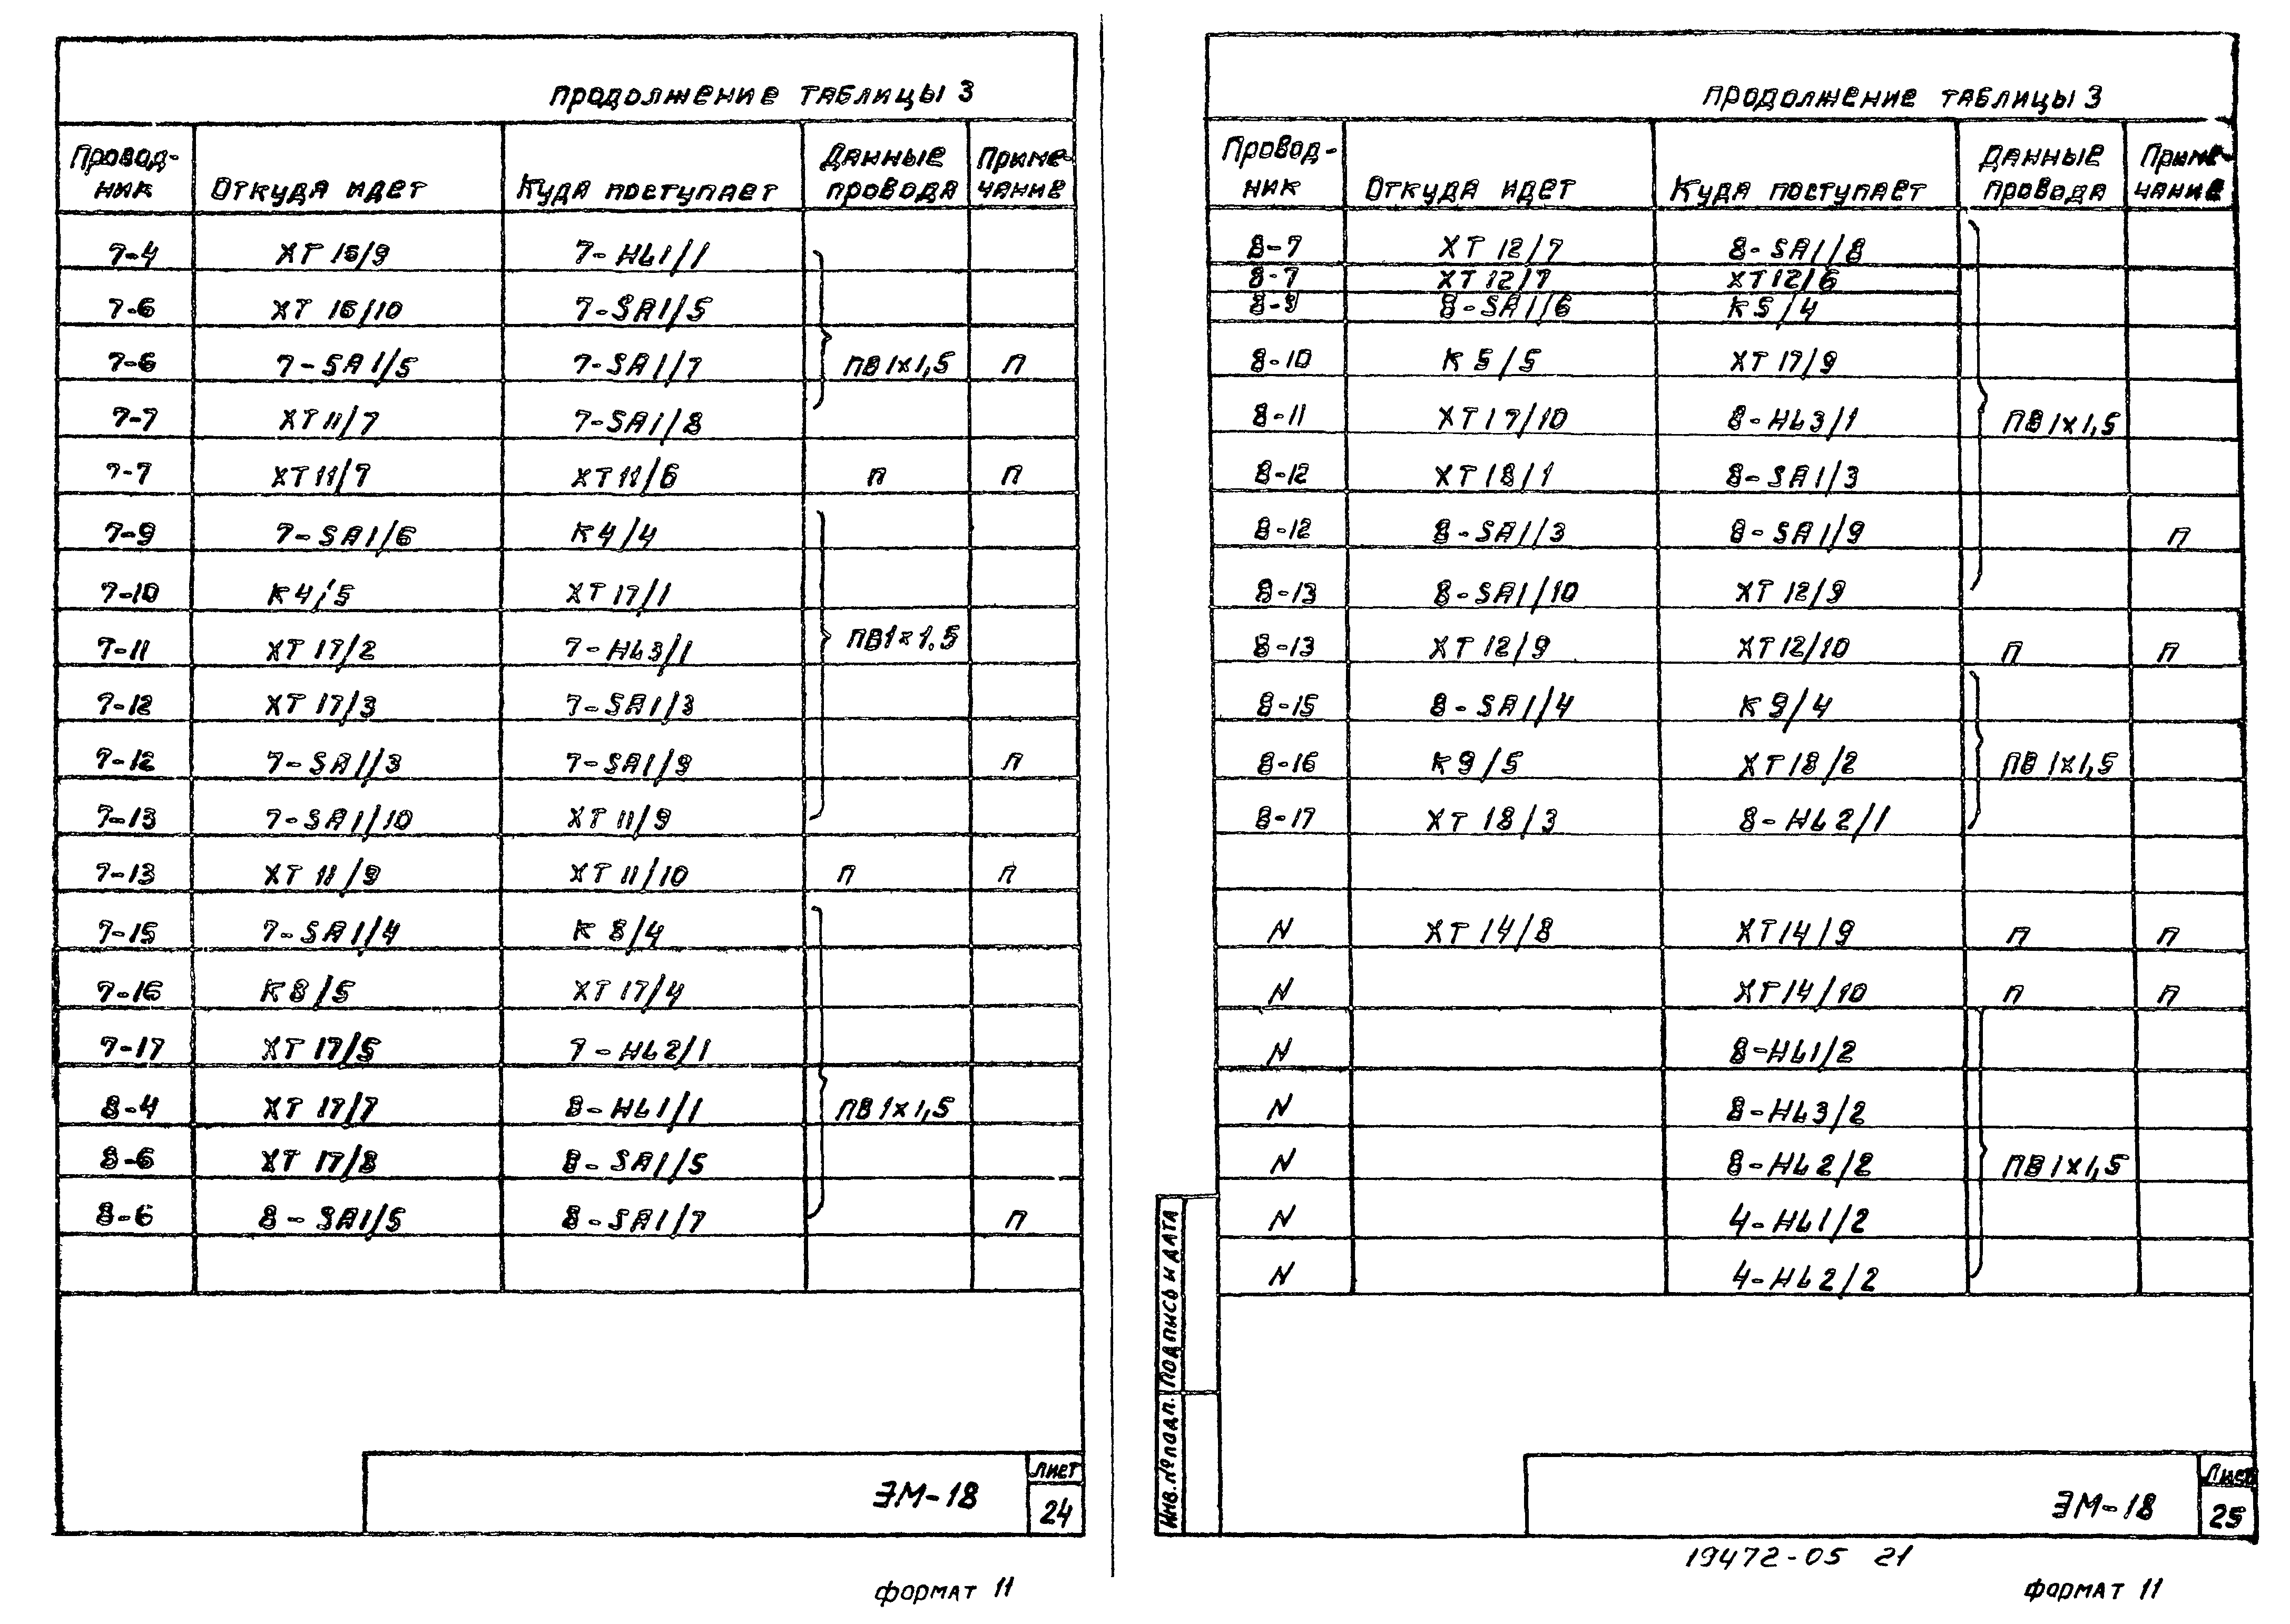 Продолжение таблицы 3
Провод-
ник Откуда идет Куда поступает Данные провода Приме-
чание
7-4 ХТ 16/9 7-HL1/1
7-6 ХТ 16/10 7-SA1/5
7-6 7-SA1/5 7-SA1/7 ПВ1х1,5 П
7-7 ХТ11/7 7-SA1/8
7-7 ХТ11/7 ХТ11/6 П П
7-9 7-SA1/6 К4/4
7-10 К4/5 ХТ17/1
7-11 ХТ 17/2 7-HL3/1 ПВ1х1.5
7-12 ХТ 17/3 7-SA1/3
7-12 7-SA1/3 7-SA1/9 П
7-13 7-SA1/10 ХТ 11/9
7-13 ХТ 11/9 ХТ 11/10 П П
7-15 7-SA1/4 К 8/4
7-16 К8/5 ХТ 17/4
7-17 ХТ 17/5 7-HL2/1
8-4 ХТ 17/7 8-HL1/1 ПВ1х1,5
8-6 ХТ 17/8 8-SA1/5
8-6 8-SA1/5 8-SA1/7 П
ЭМ-18
Лист
24
формат 11
Продолжение таблицы 3
Провод-
ник Откуда идет Куда поступает Данные провода Приме-
чание
8-7 ХТ 12/7 8-SA1/8
8-7 ХТ12/7 ХТ12/6
8-9 8-SA1/6 К5/4
8-10 К 5/5 ХТ 17/9
8-11 ХТ17/10 8-HL3/1 ПВ1х1,5
8-12 ХТ18/1 8-SA1/3
8-12 8-SA1/3 8-SA1/9 П
8-13 8-SA1/10 ХТ 12/9
8-13 ХТ 12/9 ХТ12/10 П П
8-15 8-SA1/4 К 9/4
8-16 К9/5 ХТ18/2 ПВ1х1,5
8-17 ХТ 18/3 8-HL2/1
N ХТ 14/8 ХТ14/9 П П
N ХТ14/10 П П
N 8-HL1/2
N 8-HL3/2
N 8-HL2/2 ПВ1х1,5
N 4-HL1/2
N 4-HL2/2
Инв.№подл. Подпись и дата
ЭМ-18
Лист
25
19472-05 21
формат 11